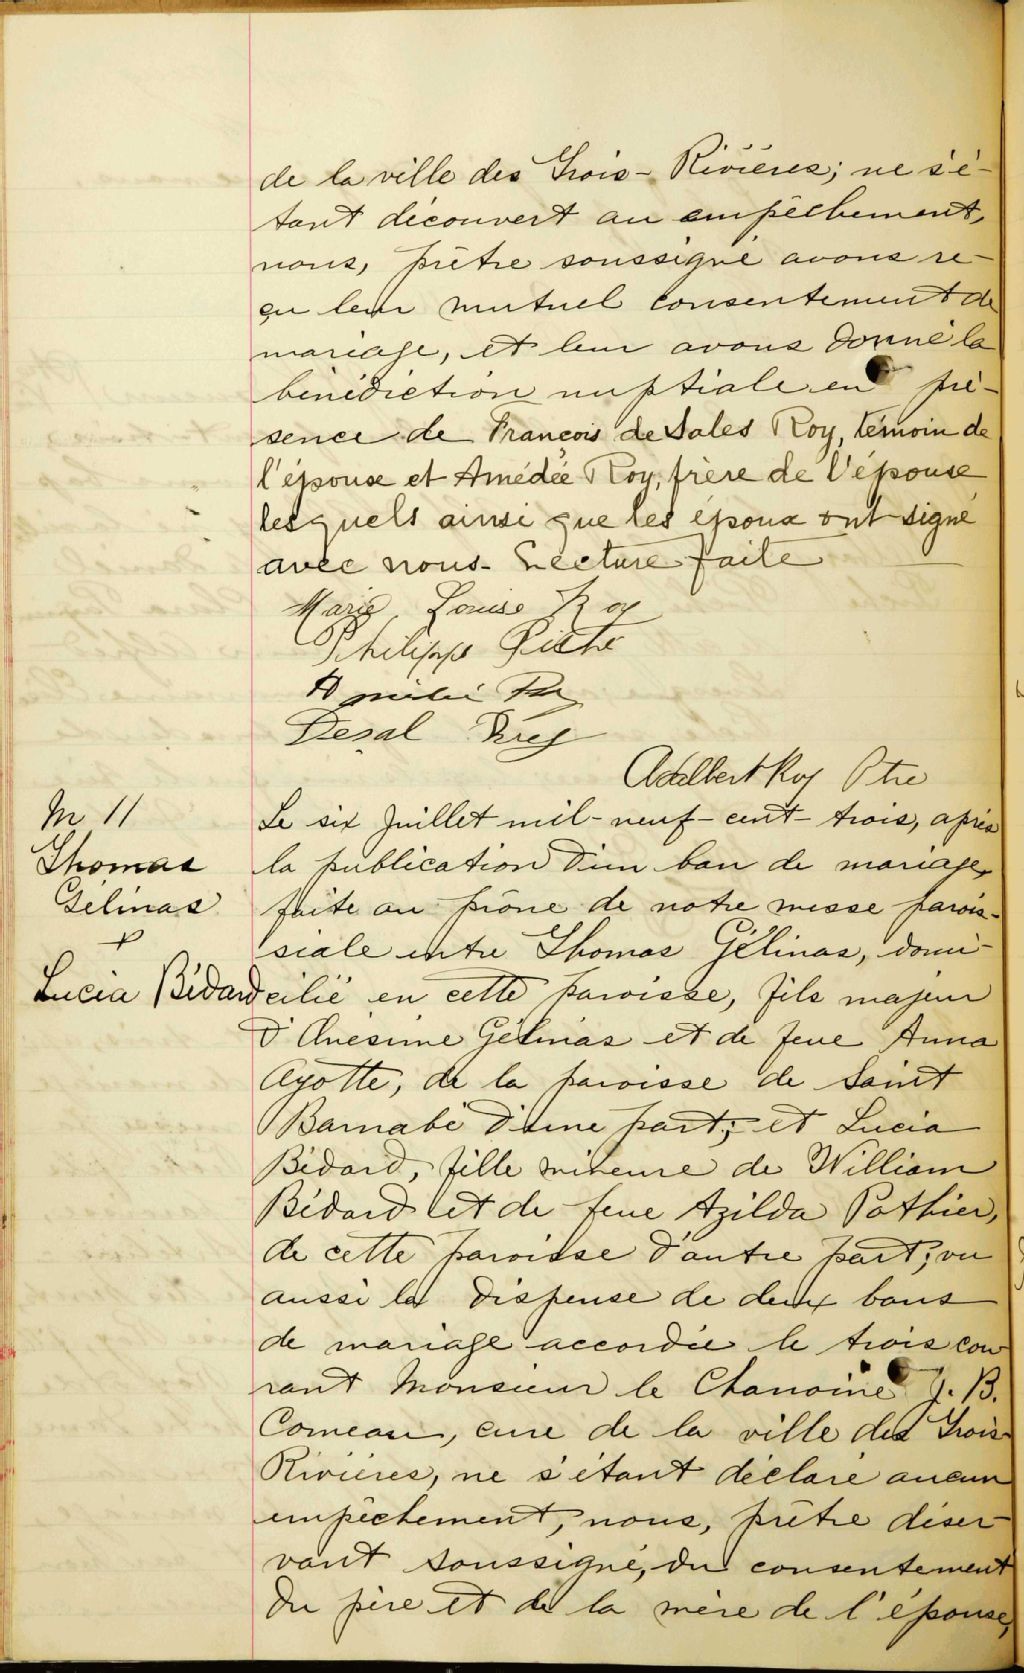 de la ville des Trois-Rivières; ne s'é-
tant découvert au empêchement,
nous, prêtre soussigné avons re-
çu leur mutuel consentement de
mariage, et leur avons donné la
bénédiction nuptiale en pré-
sence de François de Sales Roy, témoin de
l'épouse et Amédée Roy, frère de l'épouse
lesquels ainsi que les époux ont signé
avec nous. Lecture faite
Marie Louise Roy
Philippe Piché
Amédé Roy
Desal Roy
Adalbert Roy Ptre
M 11
Thomas
Gélinas
+
Lucia Bédard
Le six Juillet mil-neuf-cent-trois, après
la publication d'un ban de mariage,
faite au prône de notre messe parois-
siale entre Thomas Gélinas, domi-
cilié en cette paroisse, fils majeur
d'Onésime Gélinas et de feue Anna
Ayotte, de la paroisse de Saint
Barnabé d'une part; et Lucia
Bédard, fille mineure de William
Bédard et de feue Azilda Pothier,
de cette paroisse d'autre part; vu
aussi la dispense de deux bans
de mariage accordée le trois cou
rant Monsieur le Chanoine J. B.
Comeau, curé de la ville des Trois-
Rivières, ne s'étant déclaré aucun
empêchement, nous, prêtre déser-
vant soussigné, du consentement
du père et de la mère de l'épouse,